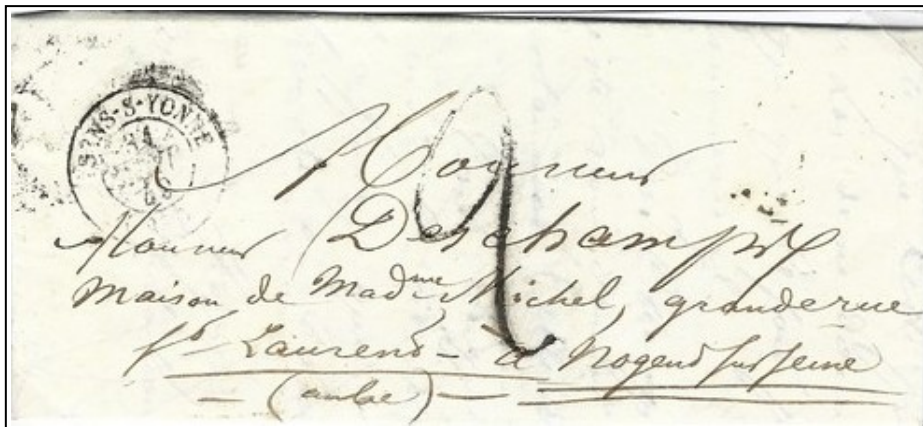 SENS-S-YONNE
2
Monsieur
Monsieur Deschamps
maison de Mad^me Michel, grande rue
S^t Laurent - à Nogent sur Seine
- (aube) -